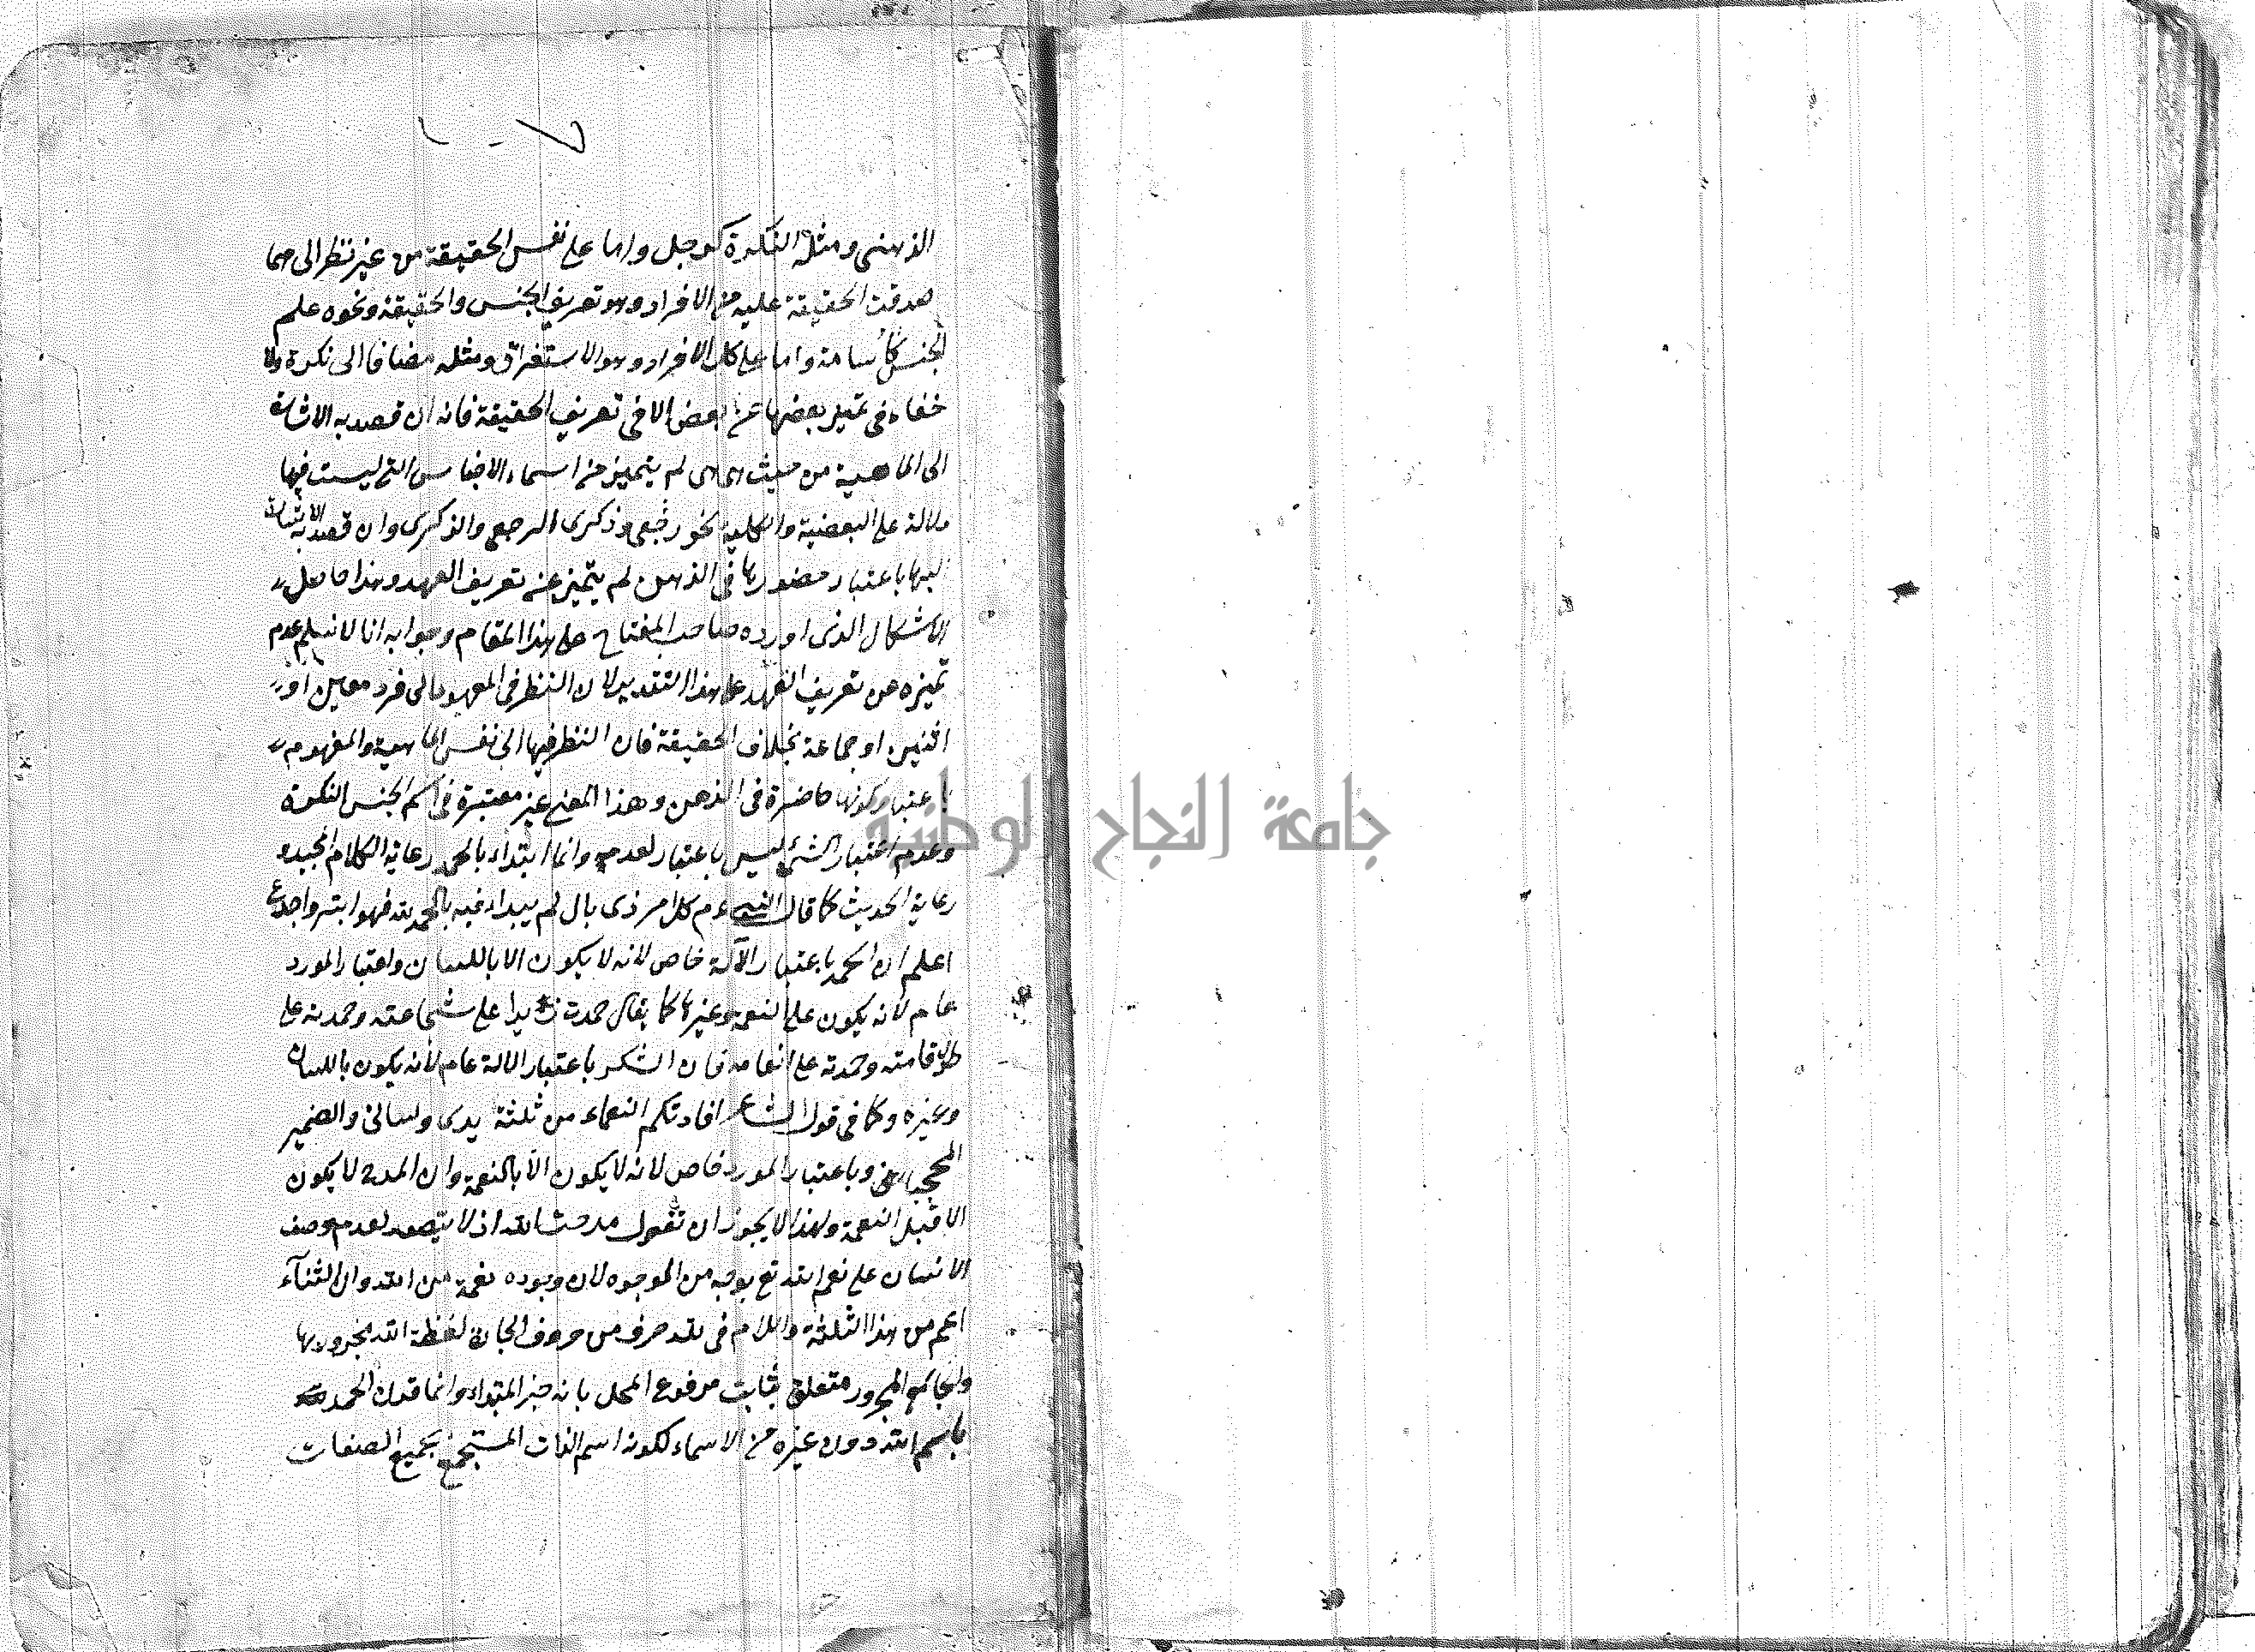 الذهنى ومثله النكرة كرجل واما على نفس الحقيقة من غير نظر الى ما
صدقت الحقيقة عليه من الافراد وهو تعريف الجنس والحقيقة ونحوه علم
الجنس كأسامة واما على كل الافراد وهو الاستغراق ومثله مضافا الى نكرة ولا
خفاء فى تميز بعضها عن بعض الا فى تعريف الحقيقة فانه ان قصد به الاشارة
الى الماهية من حيث هى هى لم يتميز من اسماء الاجناس التى ليست فيها
دلالة على البعضية والكلية نحو رجعى وذكرى الرجع والذكرى وان قصد به الاشارة
اليها باعتبار حضورها فى الذهن لم يتميز عن تعريف العهد وهذا حاصل
الاشكال الذى اورده صاحب المفتاح على هذا المقام وجوابه انا لا نسلم عدم
تميزه عن تعريف العهد على هذا التقدير لان النظر فى المعهود الى فرد معين او
اثنين او جماعة بخلاف الحقيقة فان النظر فيها الى نفس الماهية والمفهوم
باعتبار كونها حاضرة فى الذهن وهذا المعنى غير معتبرة فى اسم الجنس النكرة
وعدم اعتبار الشئ ليس باعتبار لعدمه وانما ابتداء بالحمد رعاية الكلام المجيد و
رعاية الحديث كما قال النبى ءم كل امر ذى بال لم يبداء فيه بالحمد لله فهو ابتر واجدع
اعلم ان الحمد باعتبار الآلة خاص لانه لا يكون الا باللسان واعتبار المورد
عام لانه يكون على النعمة وغيرها كما يقال حمدت زيدا على شجاعته وحمدته على
طول قامته وحمدته على انعامه فان الشكر باعتبار الالة عام لانه يكون باللسان
وغيره وكما فى قول الشاعر افادتكم النعماء من ثلثة يدى ولسانى والضمير
المحجبا وباعتبار المورد خاص لانه لا يكون الا بالنعمة وان المدح لا يكون
الا قبل النعمة ولهذا لا يجوز ان تقول مدحت الله اذ لا يتصور لعدم وصف
الانسان على نعم الله تع بوجه من الوجوه لان وجوده نعمة من الله وان الثنآء
اعم من هذا الثلثة واللام فى لله حرف من حروف الجارة لفظة الله مجرور بها
والجار والمجرور متعلق بثابت مرفوع المحل بانه خبر المبتداء وانما قدل الحمد
باسم الله دون غيره من الاسماء لكونه اسم الذات المستجمع بجميع الصفات
جامعة النجاح الوطنية